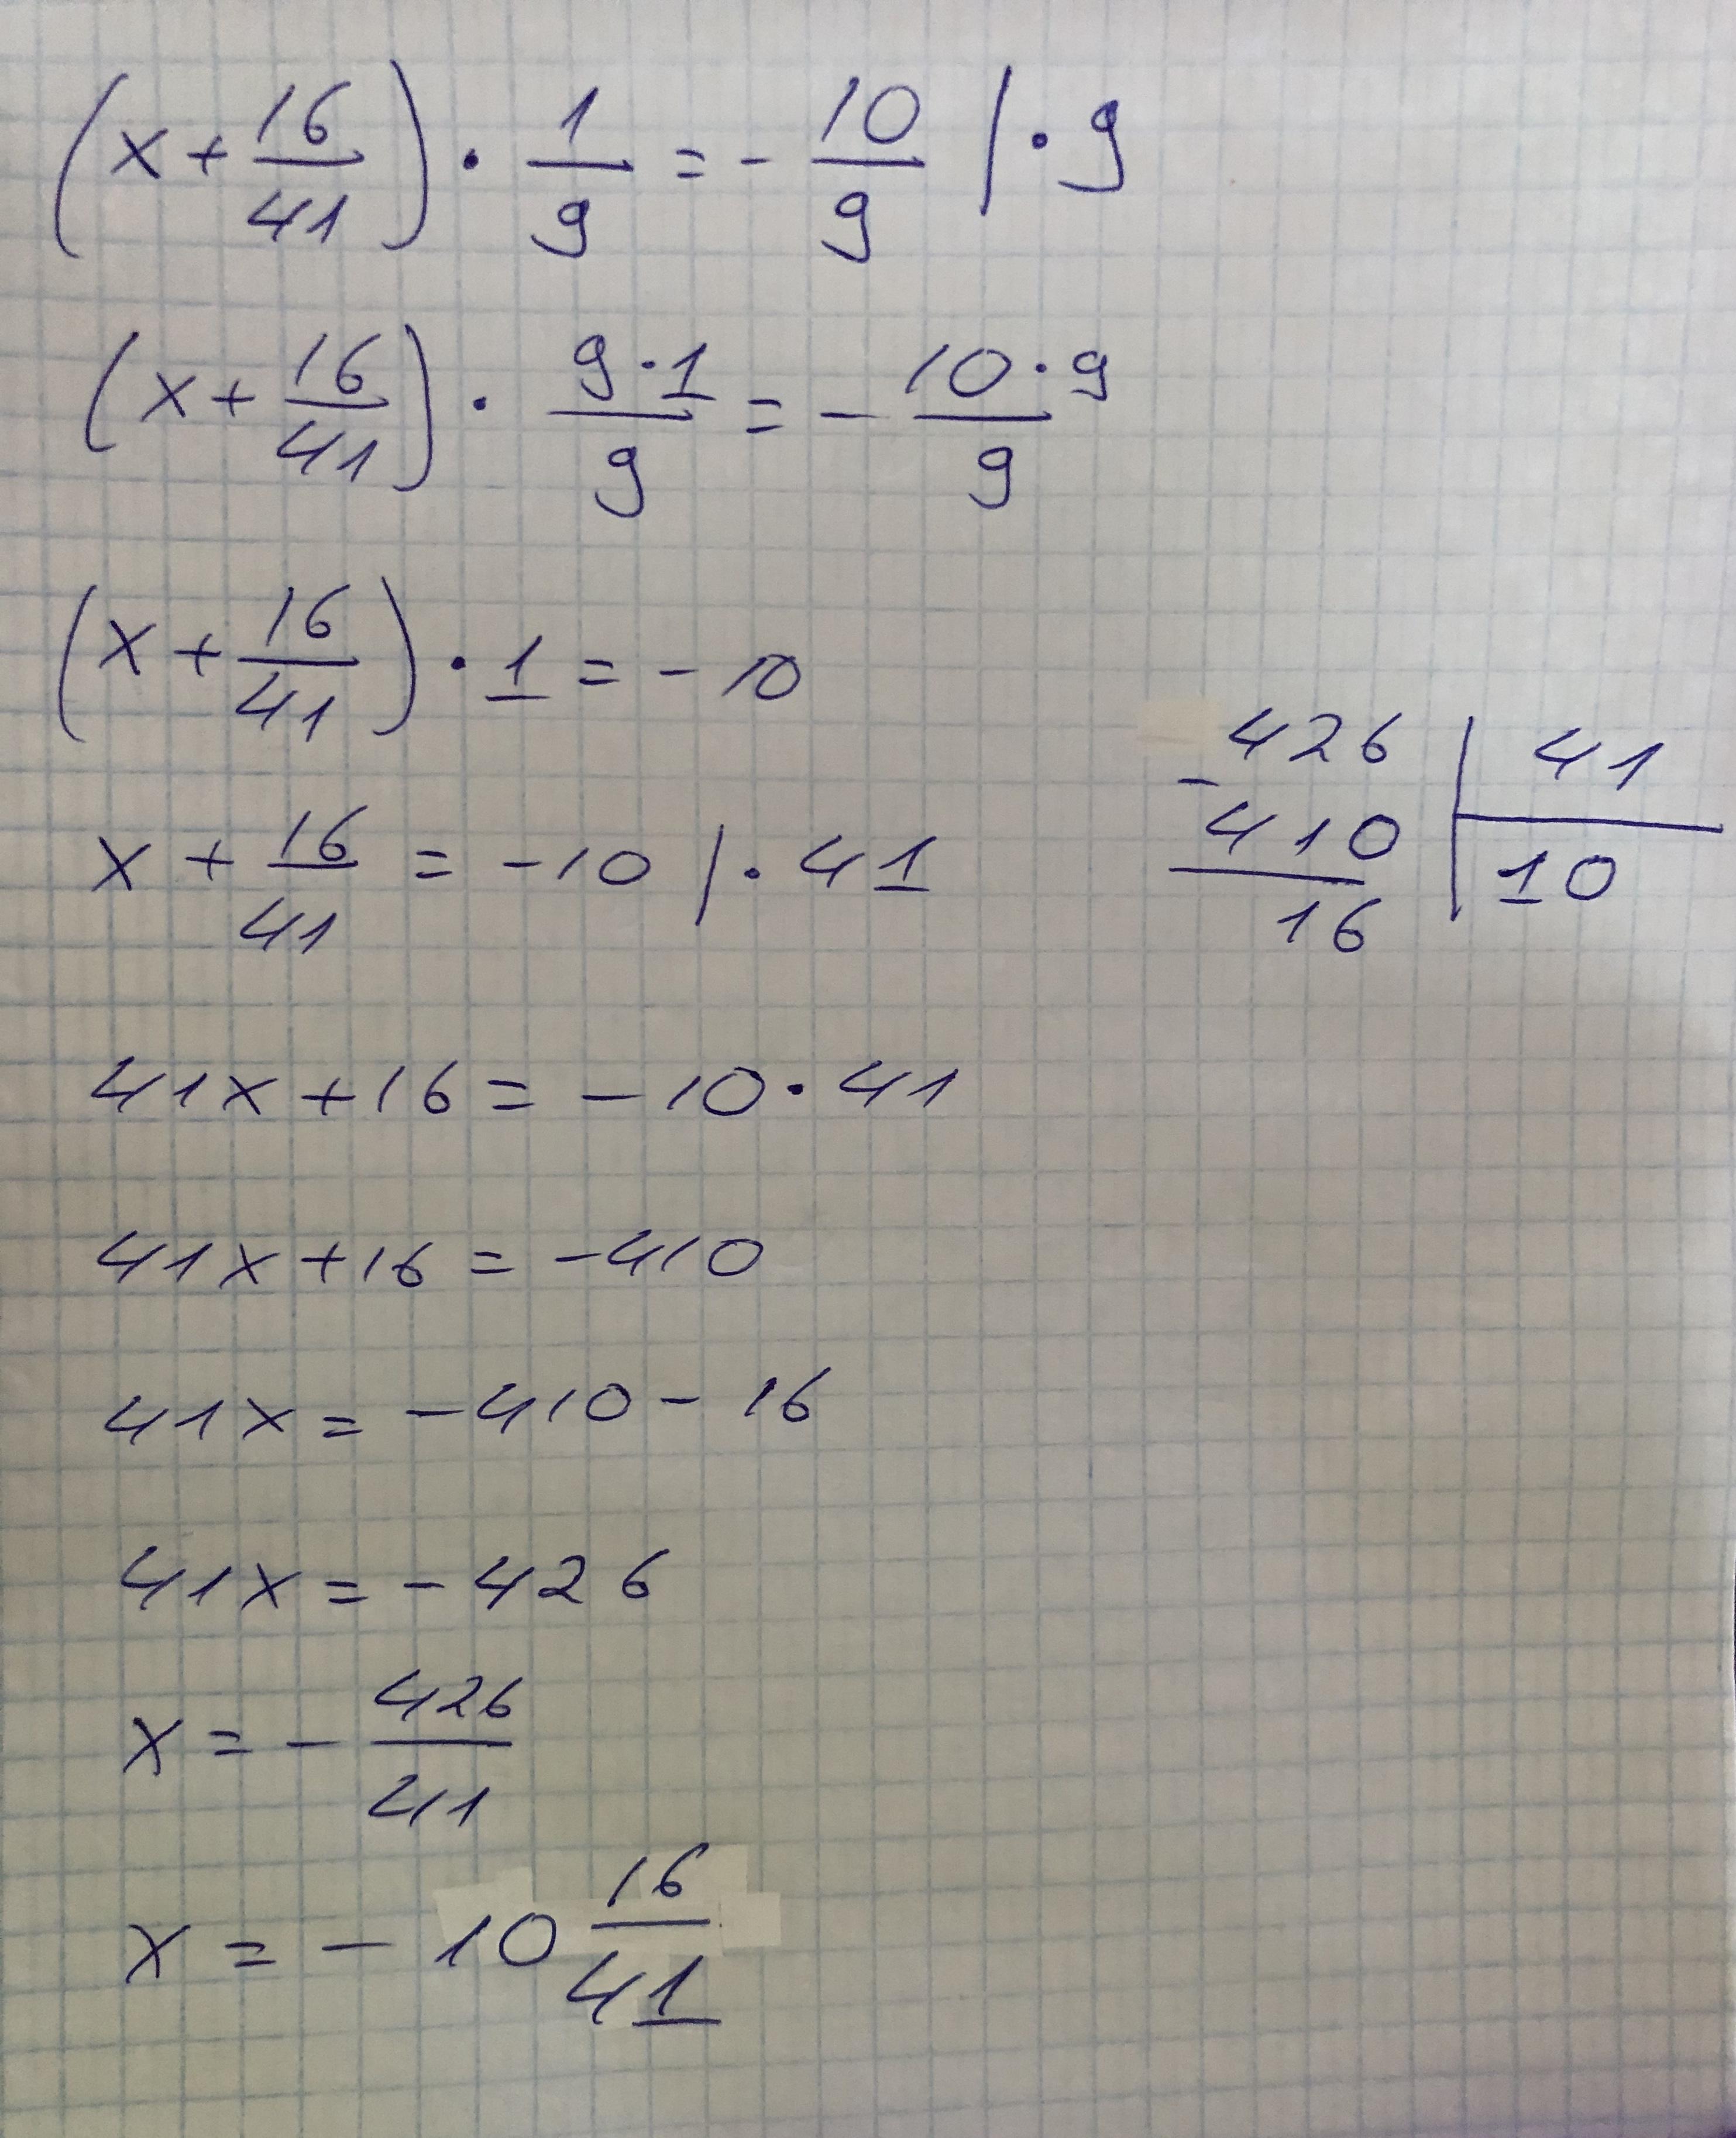 (x + 16/41) · 1/9 = - 10/9 | · 9
(x + 16/41) · 9·1/9 = - 10·9/9
(x + 16/41) · 1 = - 10
x + 16/41 = -10 | · 41
41x + 16 = - 10 · 41
41x + 16 = -410
41x = -410 - 16
41x = - 426
x = - 426/41
x = - 10 16/41
426 | 41
- 410 | 10
16